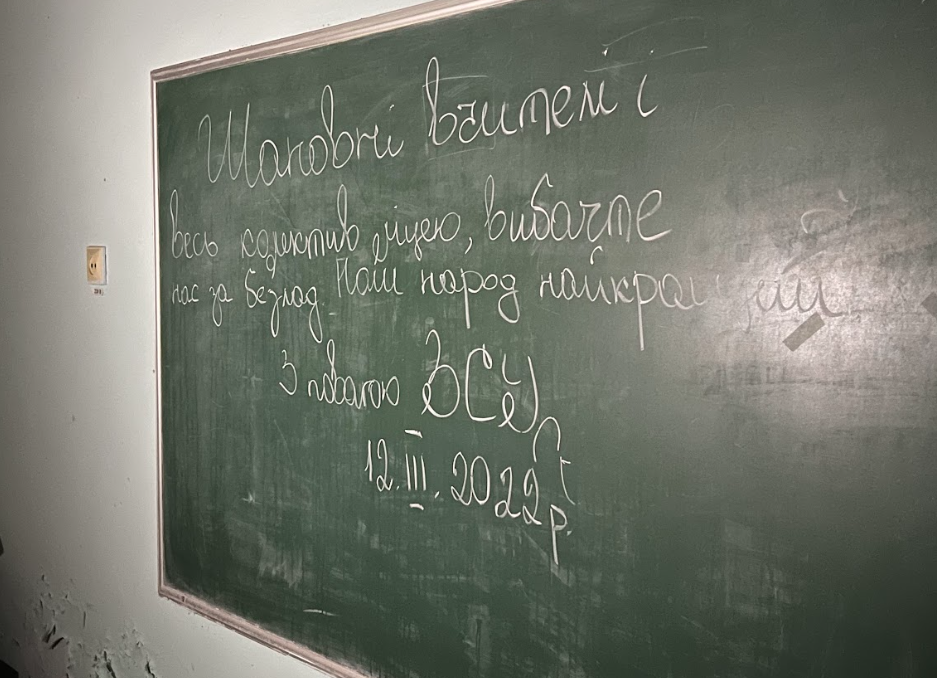 Шановні вчителі і
весь колектив ліцею, вибачте
нас за безлад. Наш народ найкращий
З повагою ЗСУ
12.III.2022р.